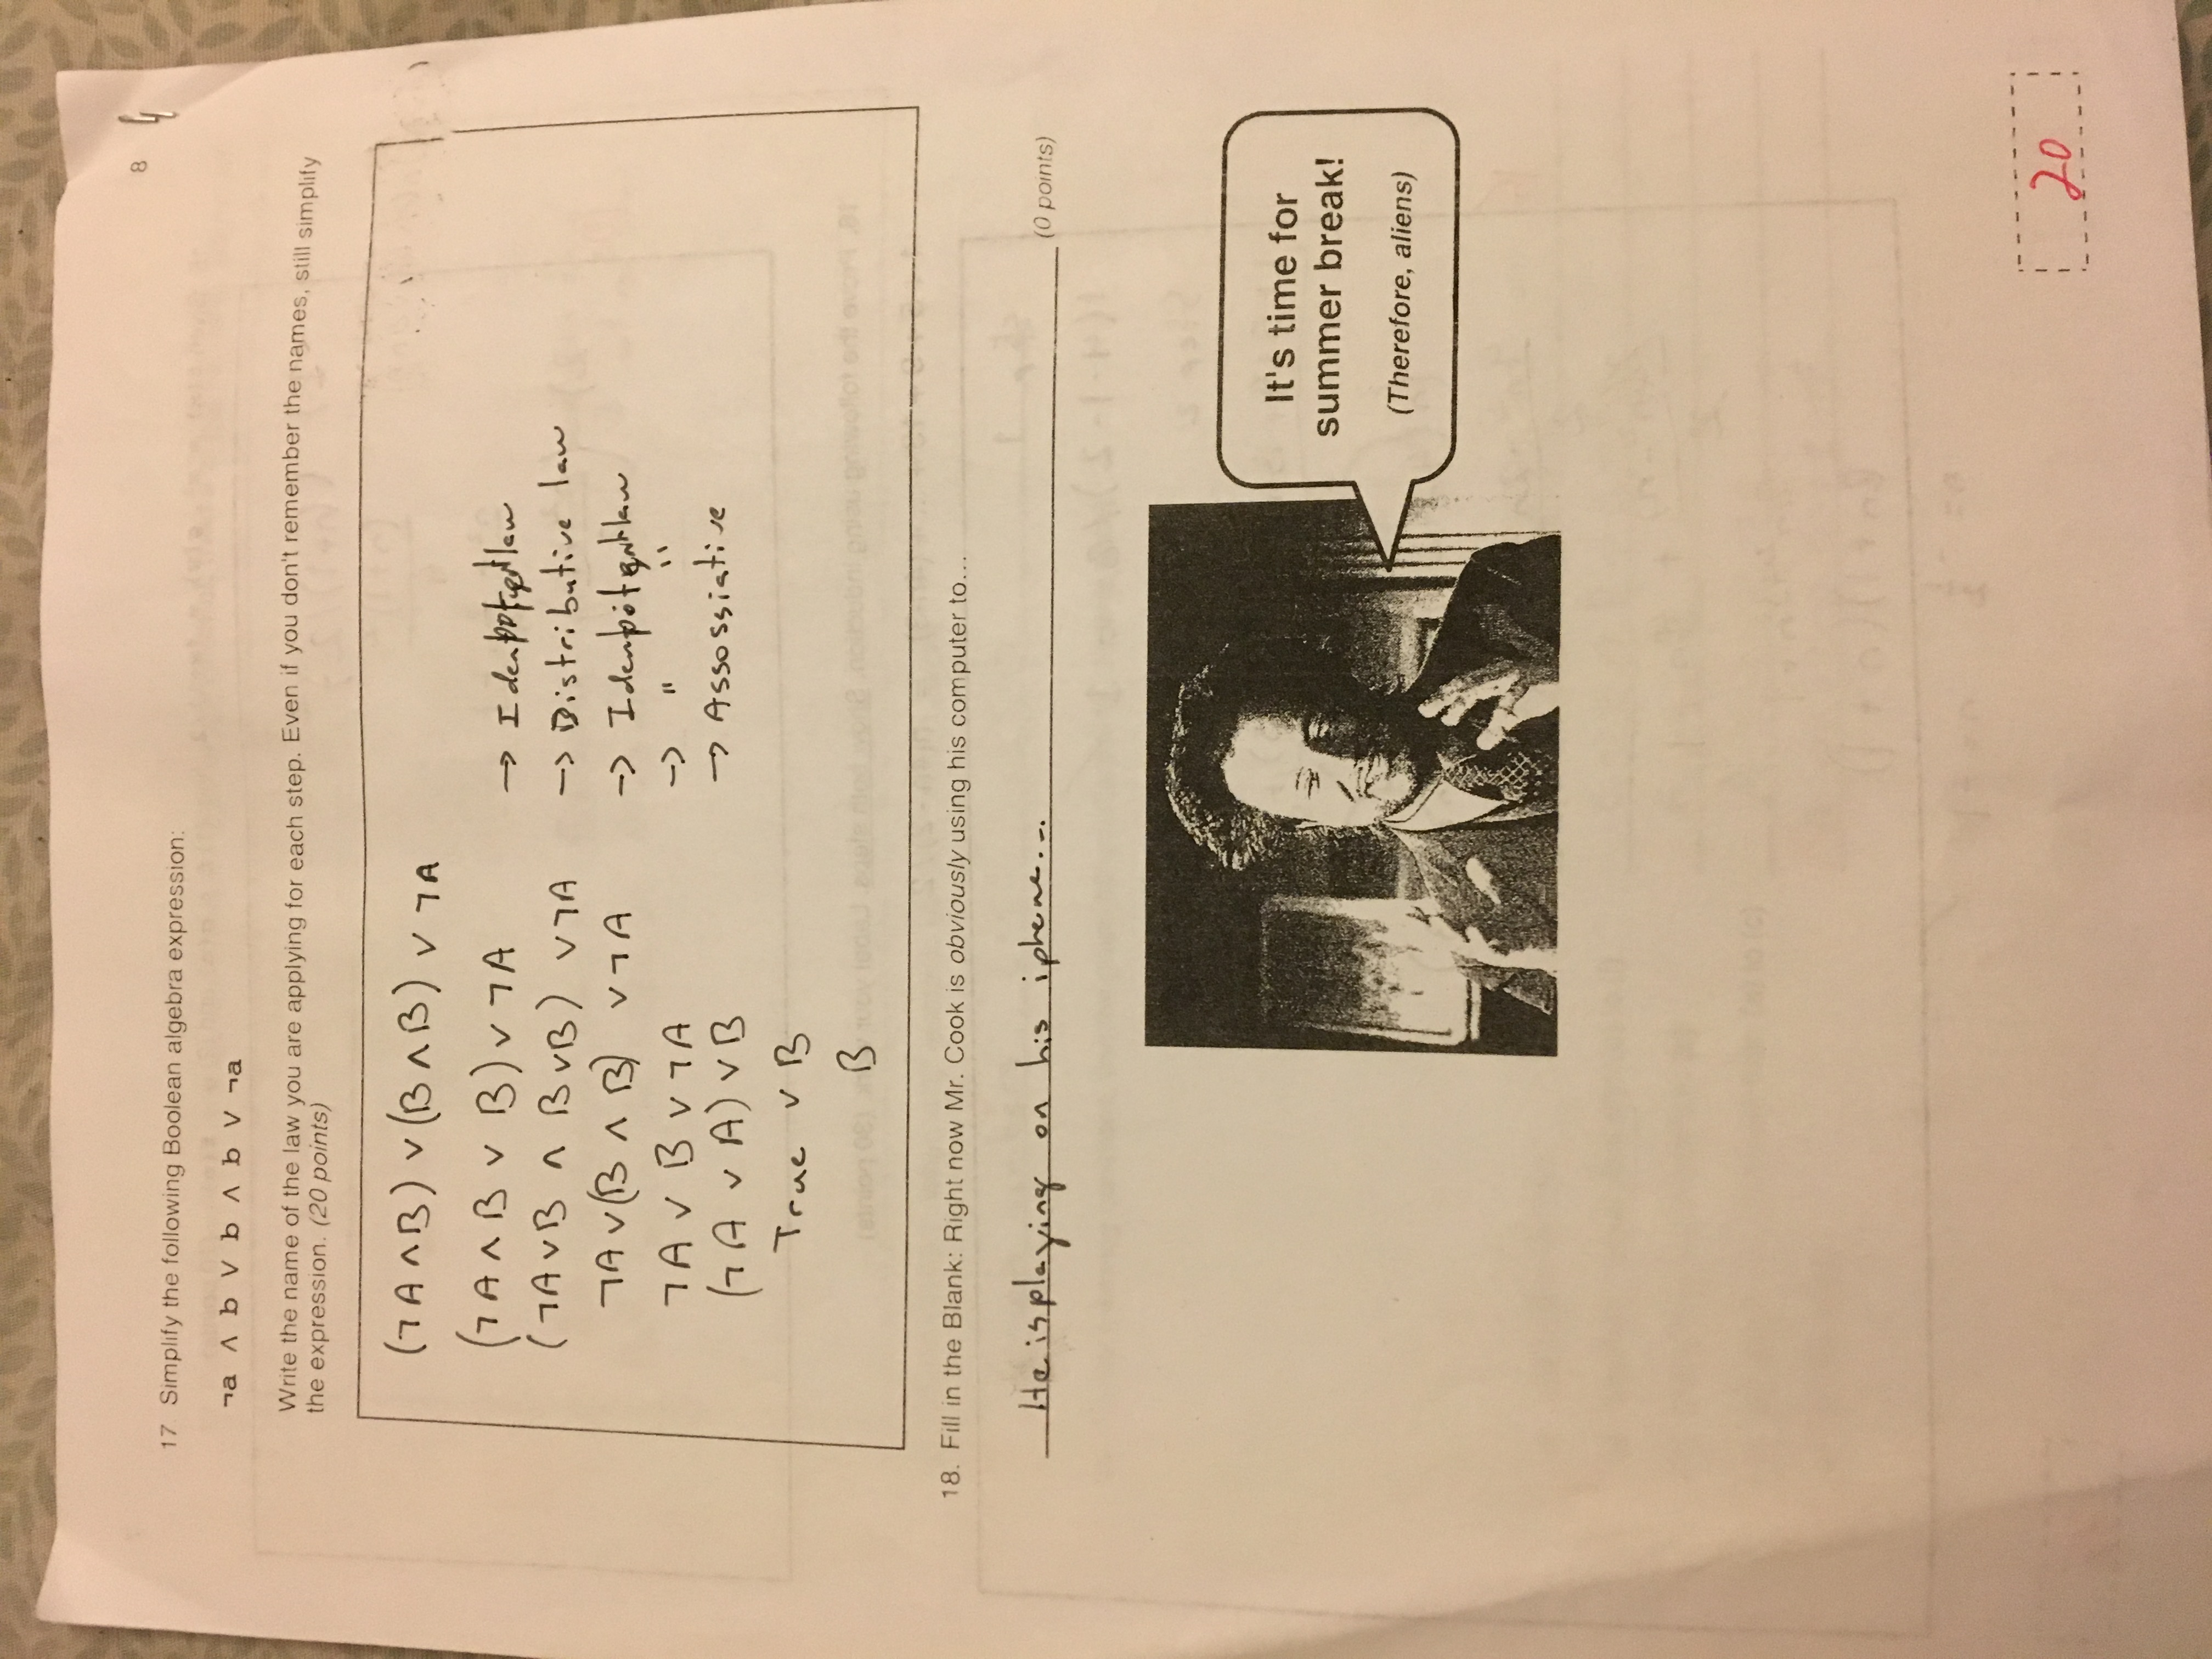 8
17. Simplify the following Boolean algebra expression:
¬a ∧ b ∨ b ∧ b ∨ ¬a
Write the name of the law you are applying for each step. Even if you don't remember the names, still simplify
the expression. (20 points)
(¬A∧B) ∨ (B∧B) ∨ ¬A
(¬A∧B ∨ B) ∨ ¬A → law
(¬A∨B ∧ B∨B) ∨¬A → Distributive law
¬A∨(B ∧ B) ∨¬A → law
¬A ∨ B ∨ ¬A → " "
(¬A ∨ A) ∨ B → Assossiative
True ∨ B
B
18. Fill in the Blank: Right now Mr. Cook is obviously using his computer to...
He is playing on his iphone... (0 points)
It's time for
summer break!
(Therefore, aliens)
20